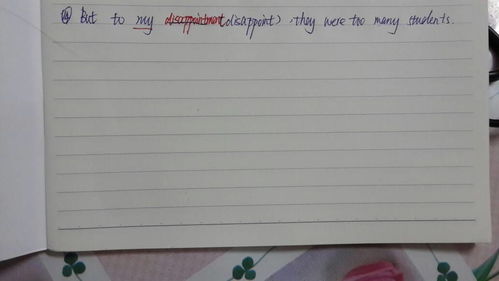 ④ But to my disappointment (disappoint), they were too many students.